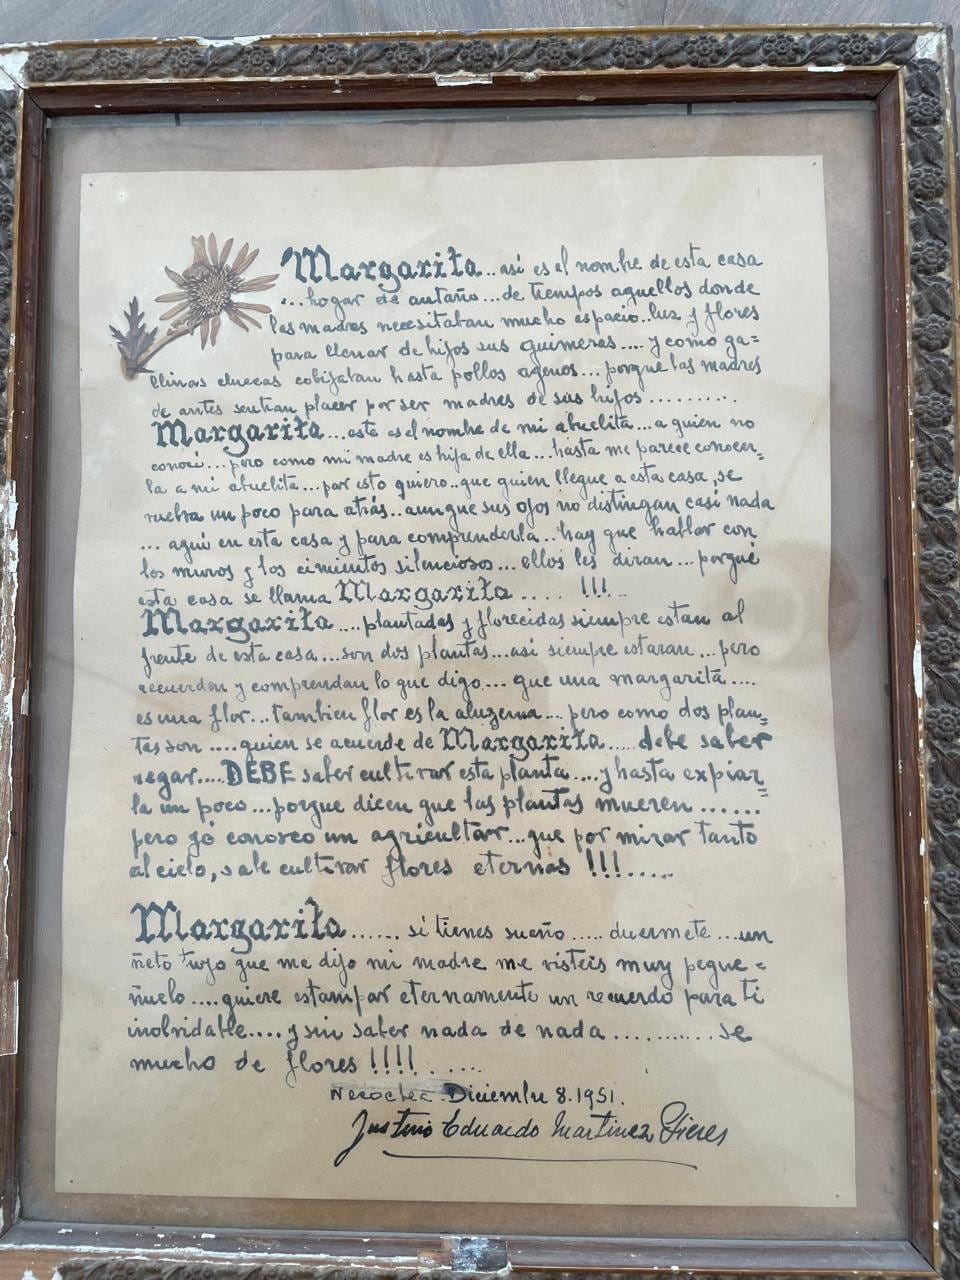 Margarita...así es el nombre de esta casa
...hogar de antaño...de tiempos aquellos donde
las madres necesitaban mucho espacio..luz y flores
para llenar de hijos sus quimeras....y como ga=
llinas cluecas cobijaban hasta pollos agenos...porque las madres
de antes sentian placer por ser madres de sus hijos..........
Margarita...este es el nombre de mi abuelita...a quien no
conoci...pero como mi madre es hija de ella...hasta me parece conocer=
la a mi abuelita...por esto quiero..que quien llegue a esta casa, se
vuelva un poco para atrás..aunque sus ojos no distingan casi nada
...aqui en esta casa y para comprenderla..hay que hablar con
los muros y los cimientos silenciosos...ellos les diran...porqué
esta casa se llama Margarita.... !!!..
Margarita....plantadas y florecidas siempre estan al
frente de esta casa...son dos plantas...asi siempre estaran...pero
recuerden y comprendan lo que digo....que una margarita....
es una flor...tambien flor es la aluzema...pero como dos plan=
tas son....quien se acuerde de Margarita.....debe saber
regar....DEBE saber cultivar esta planta....y hasta expiar=
la un poco...porque dicen que las plantas mueren......
pero yó conosco un agricultor...que por mirar tanto
al cielo, sabe cultivar flores eternas !!!.....
Margarita......si tienes sueño.....duermete...un
ñeto tuyo que me dijo mi madre me visteis muy peque=
ñuelo....quiere estampar eternamente un recuerdo para ti
inolvidable....y sin saber nada de nada..........se
mucho de flores !!!!......
Necochea. Diciembre 8.1951.
Justino Eduardo Martinez Fieres